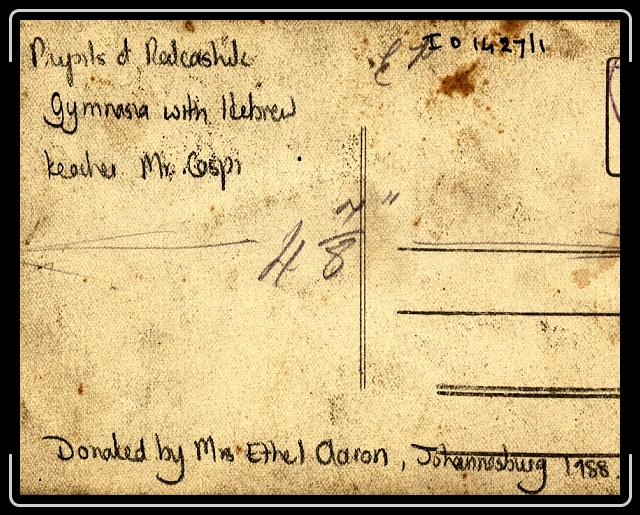 Pupils of
Gymnasia with Hebrew
teacher Mr. Caspi
I 0 1427/1
4 7/8"
Donated by Mrs Ethel Aaron, Johannesburg 1988.